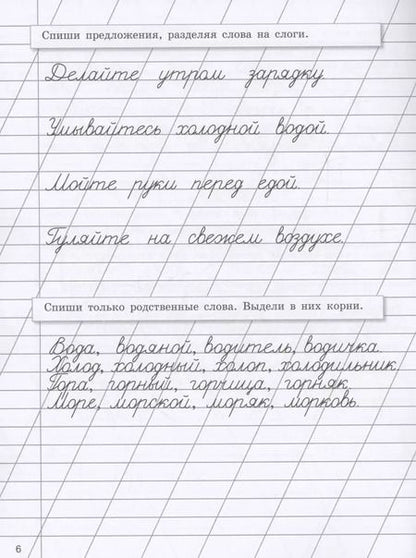 Спиши предложения, разделяя слова на слоги.
Делайте утром зарядку.
Умывайтесь холодной водой.
Мойте руки перед едой.
Гуляйте на свежем воздухе.
Спиши только родственные слова. Выдели в них корни.
Вода, водяной, водитель, водичка.
Холод, холодный, холоп, холодильник.
Гора, горный, горчица, горняк.
Море, морской, моряк, морковь.
6